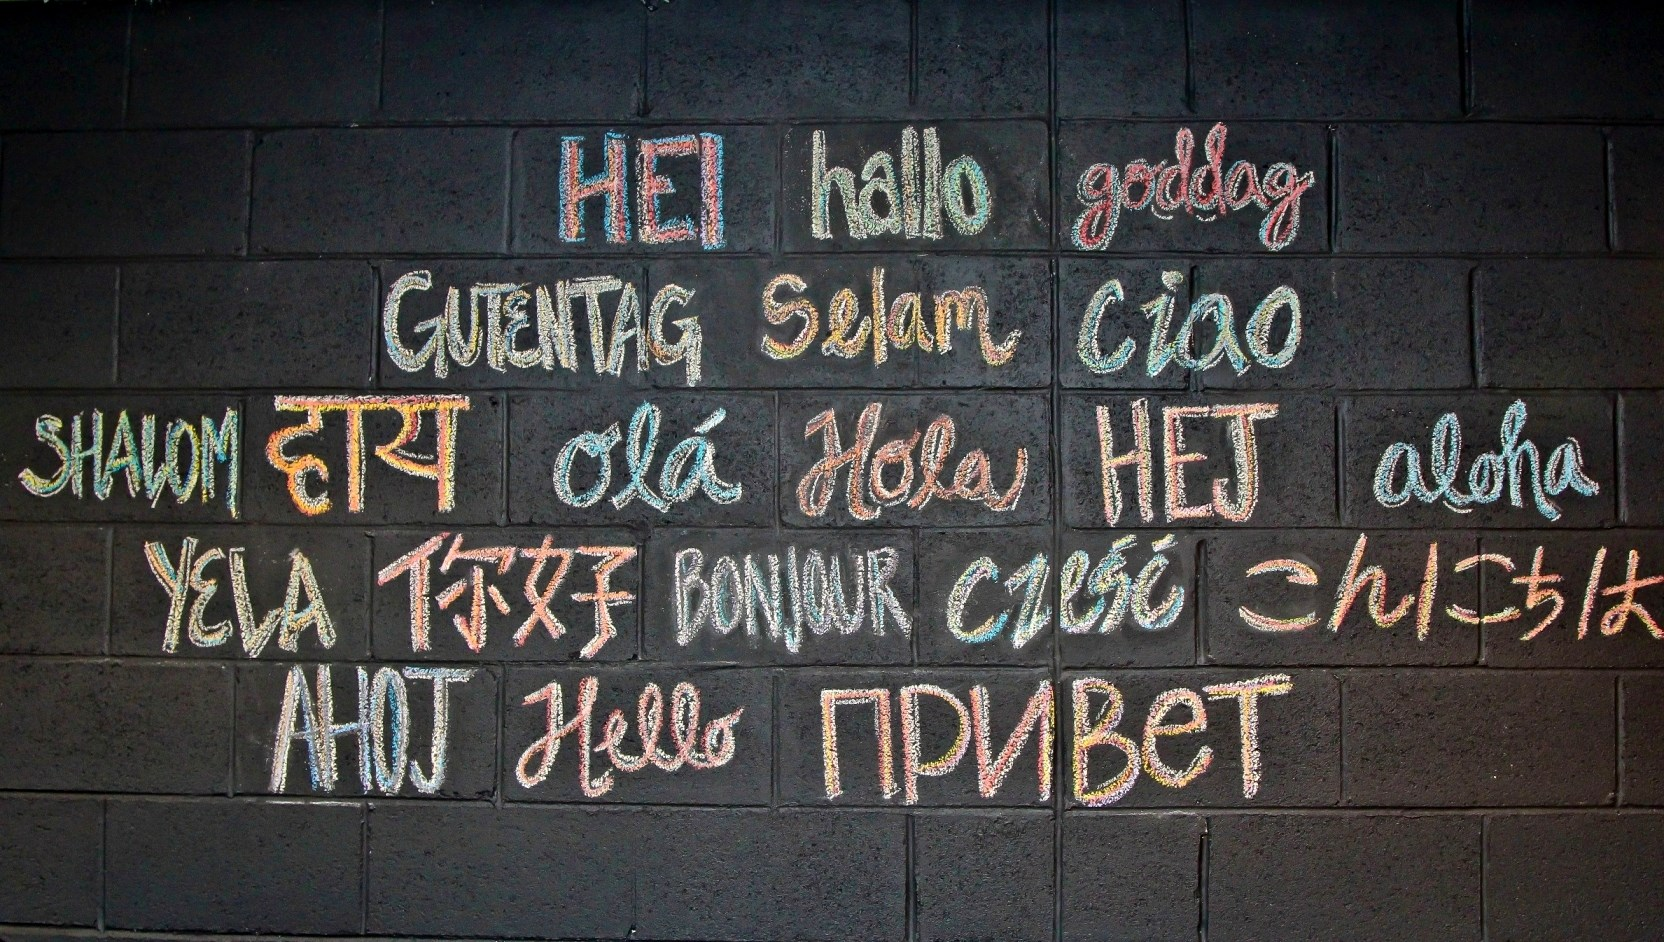 HEI hallo goddag
GUTENTAG Selam Ciao
SHALOM हाय olá Hola HEJ aloha
YELA 你好 BONJOUR CZEŚĆ こんにちは
AHOJ Hello ПРИВЕТ